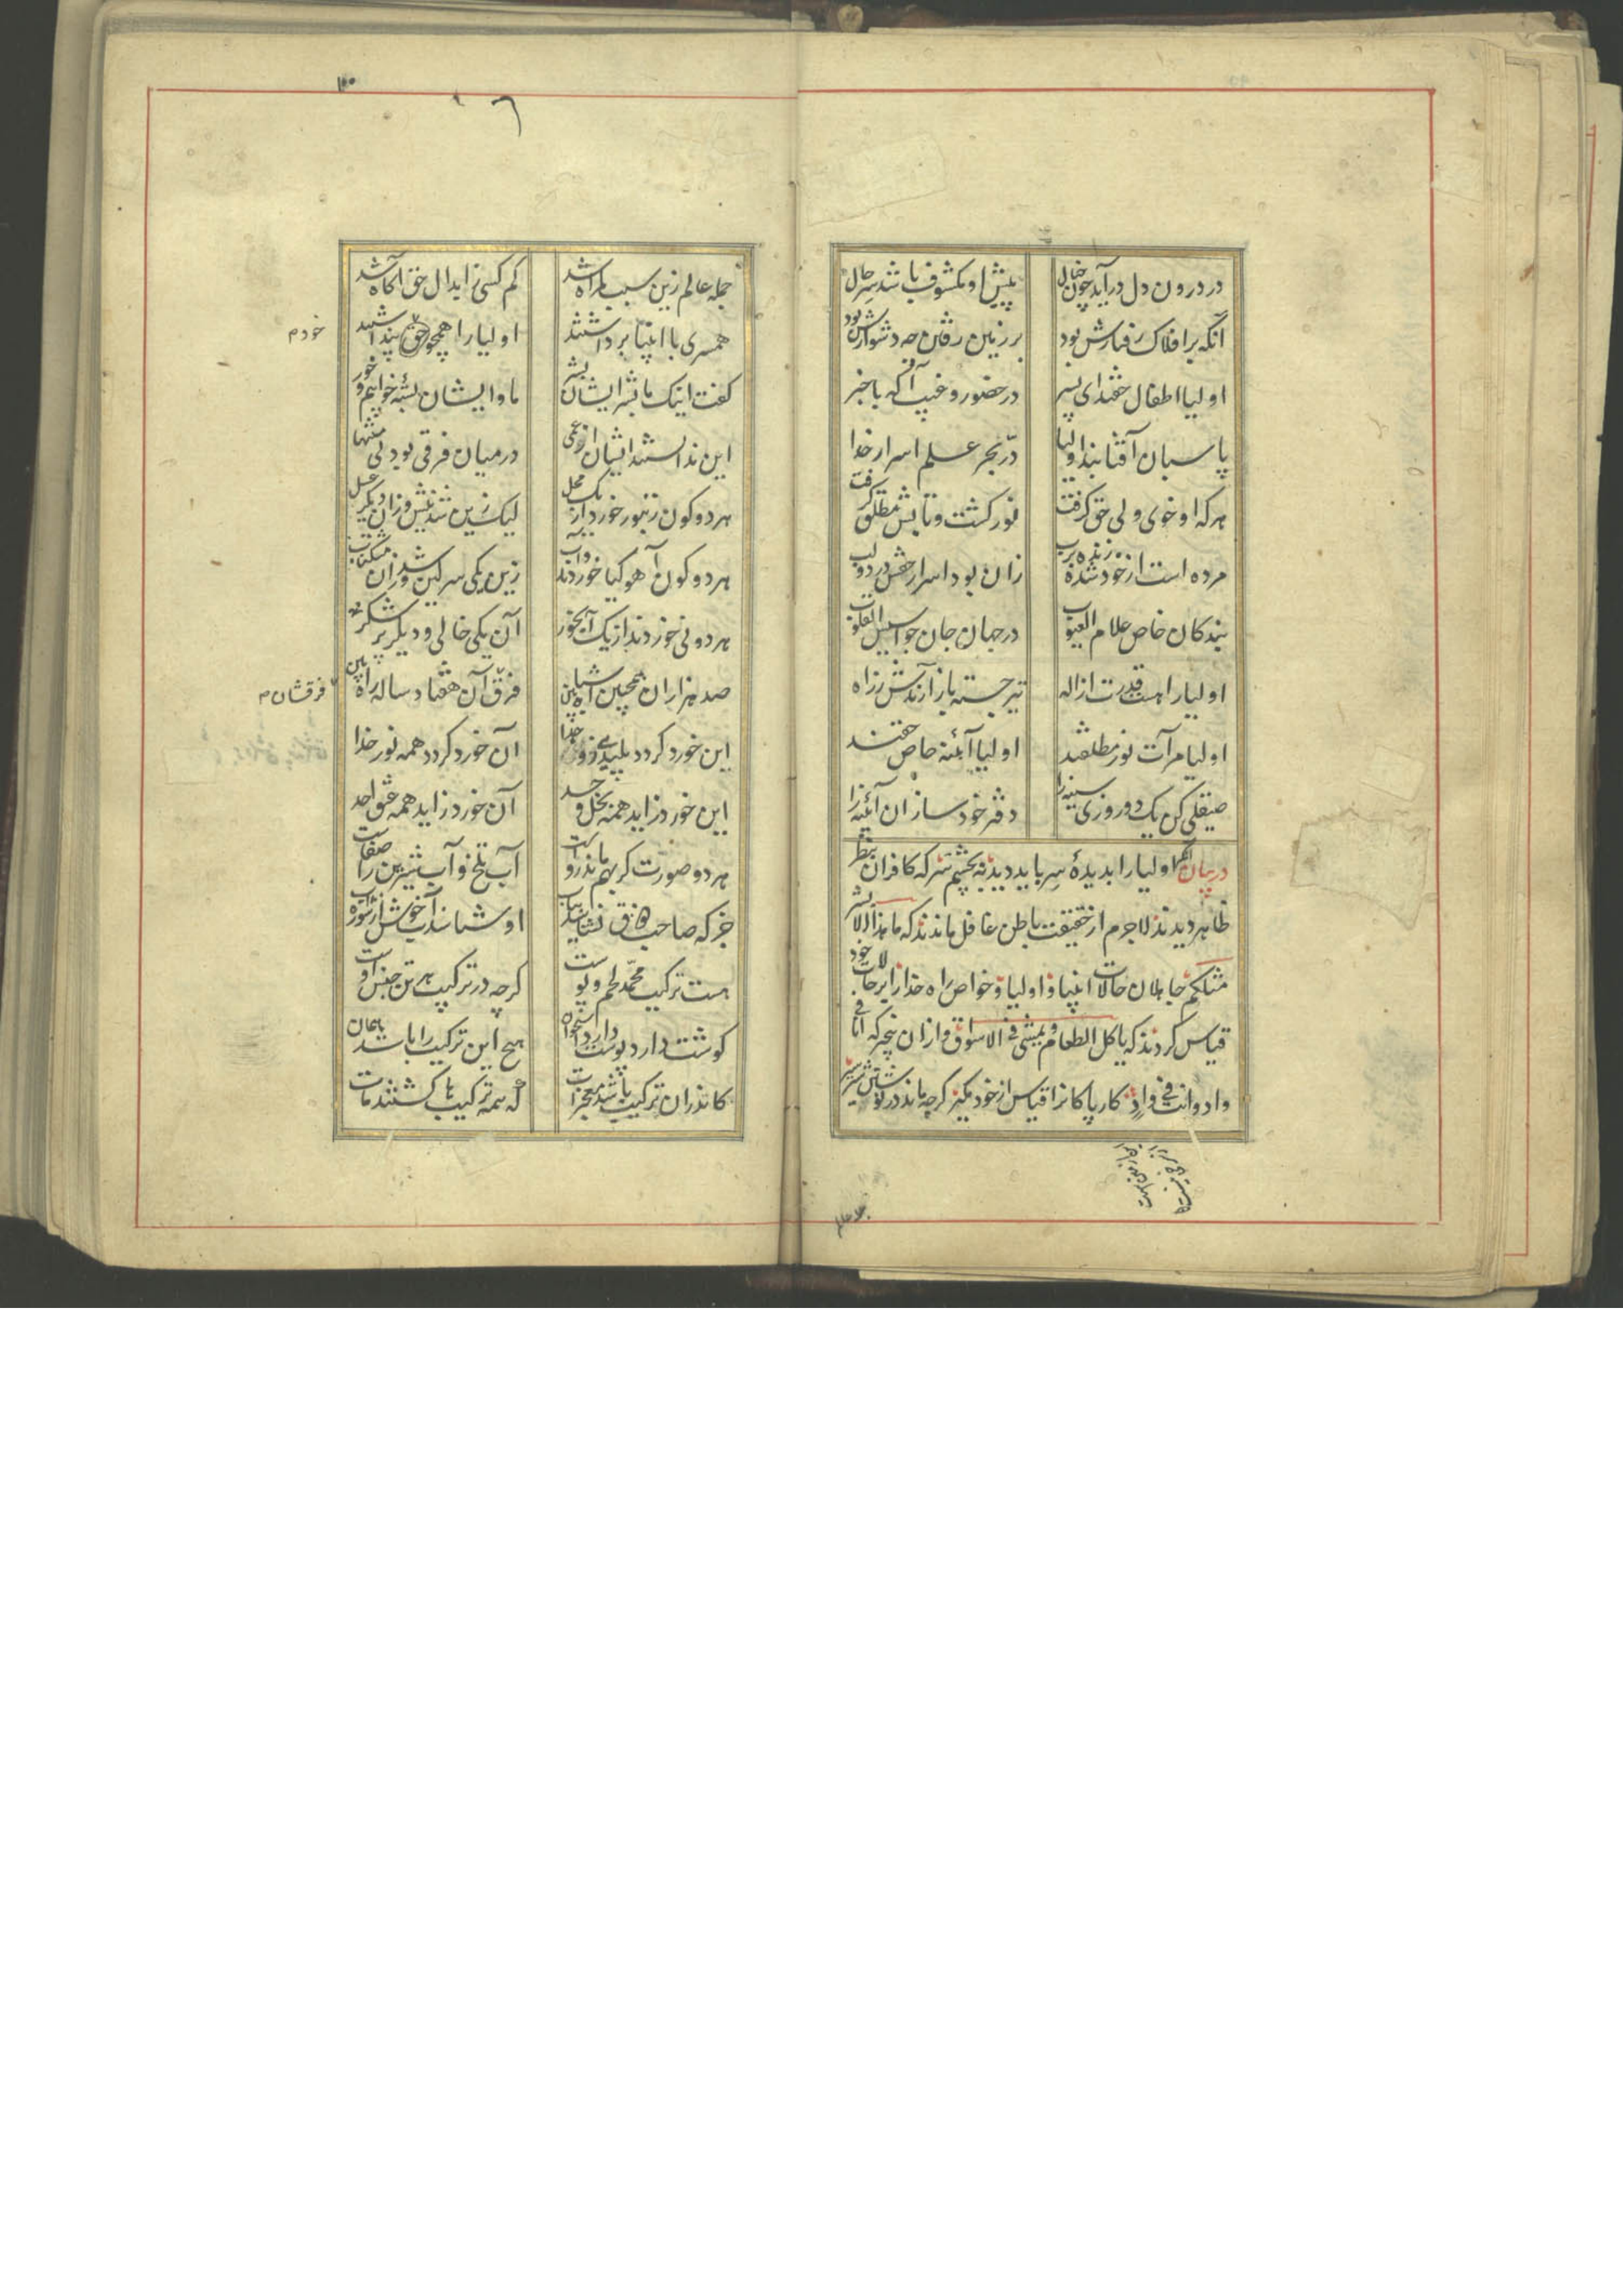 در درون دل درآید چون خیال
پیش او مکشوف باشد سر حال
آنکه بر افلاک رفتارش بود
بر زمین رفتن چه دشوارش بود
اولیا اطفال حقند ای پسر
در حضور و غیبت آگه با خبر
پاسبان آفتابند اولیا
در بحر علم اسرار خدا
هرکه او خوی ولی حق گرفت
نور گشت و تابش مطلق گرفت
مرده است از خود شده زنده برب
زان بود اسرار حقش در دو لب
بندکان خاص علام الغیوب
در جهان جان جواسیس القلوب
اولیا را هست قدرت از اله
تیر جسته باز آرندش ز راه
اولیا مرآت نور مطلقند
اولیا آئنه خاص حقند
صیقلی کن یک دو روزی سینه را
دفتر خود ساز آن آئینه را
در بیان آنکه اولیا را بدیدهٔ سر باید دید نه بچشم سر که کافران بنظر
ظاهر دیدند لاجرم از حقیقت باطن غافل ماندند که ما هذا الا بشر
مثلکم جاهلان حالات انبیا و اولیا و خواص راه خدا را بر حالات خود
قیاس کردند که یاکل الطعام و یمشی فی الاسواق و ازان بیخبر که انا فی
واد و انت فی واد کار پاکانرا قیاس از خود مکیر کرچه ماند در نوشتن شیر شیر
جمله عالم
۱۰۰
جمله عالم زین سبب کمراه شد
کم کسی ز ابدال حق آکاه شد
همسری با انبیا برداشتند
اولیا را همچو حق پنداشتند
خود م
گفت اینک ما بشر ایشان بشر
ما و ایشان بستهٔ خوابیم و خور
این ندانستند ایشان از عمی
در میان فرقی بود بی منتها
هر دو کون زنبور خورد از یک محل
لیک زین شد نیش و زان دیکر عسل
هر دو کون آهو کیا خوردند و آب
زین یکی سرکین شد و زان مشکناب
هر دو نی خوردند از یک آبخور
آن یکی خالی و دیکر پر شکر
صد هزاران همچنین اشباه بین
فرق آن هفتاد ساله راه بین
فرقشان م
این خورد کردد پلیدی زو جدا
آن خورد کردد همه نور خدا
این خورد زاید همه بخل و حسد
آن خورد زاید همه عشق احد
هر دو صورت کر بهم ماند رواست
آب تلخ و آب شیرین را صفاست
جز که صاحب ذوق نشناسد بیاب
او شناسد آب خوش از شوره آب
هست ترکیب محمد لحم و پوست
کرچه در ترکیب هر تن جنس اوست
کوشت دارد پوست دارد استخوان
هیچ این ترکیب را باشد همان
کاندران ترکیب باشد معجزات
که همه ترکیب ها کشتند مات